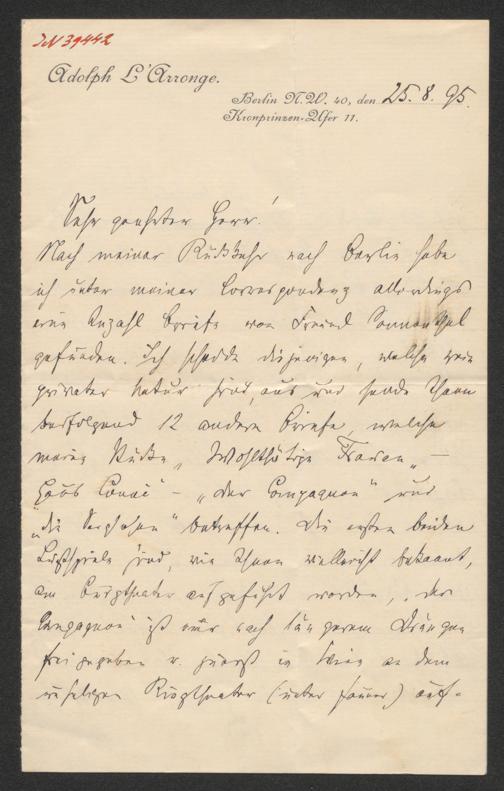 JN 39442
Adolph L'Arronge.
Berlin N.W. 40, den 25. 8. 95.
Kronprinzen-Ufer 11.
Sehr geehrter Herr!
Nach meiner Rückkehr nach Berlin habe
ich unter meiner Correspondenz allerdings
eine Anzahl Briefe von Freund Sonnenthal
gefunden. Ich scheide diejenigen, welche rein
privater Natur sind, aus und sende Ihnen
beifolgend 12 andere Briefe, welche
meine Stücke „Wohlthätige Frauen" –
„Haus Lonei" – „der Compagnon" und
„die Sorglosen" betreffen. Die ersten beiden
Lustspiele sind, wie Ihnen vielleicht bekannt,
am Burgtheater aufgeführt worden, „der
Compagnon" ist mir nach längerem Drängen
freigegeben u. zuerst in Wien an dem
unseligen Ringtheater (unter Jauner) auf-